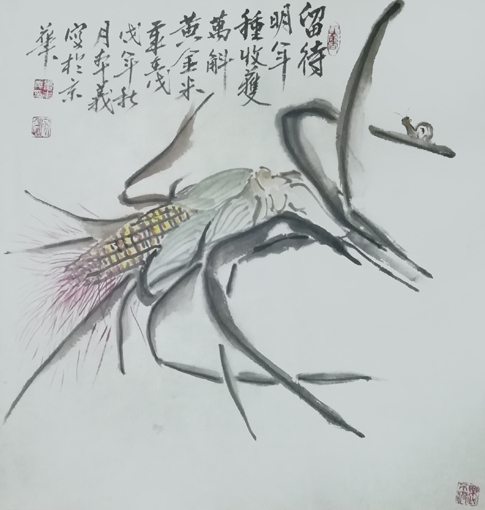 留待
明年
種收獲
萬斛
黃金米
在戊
戌年秋
月義
寫於京
華